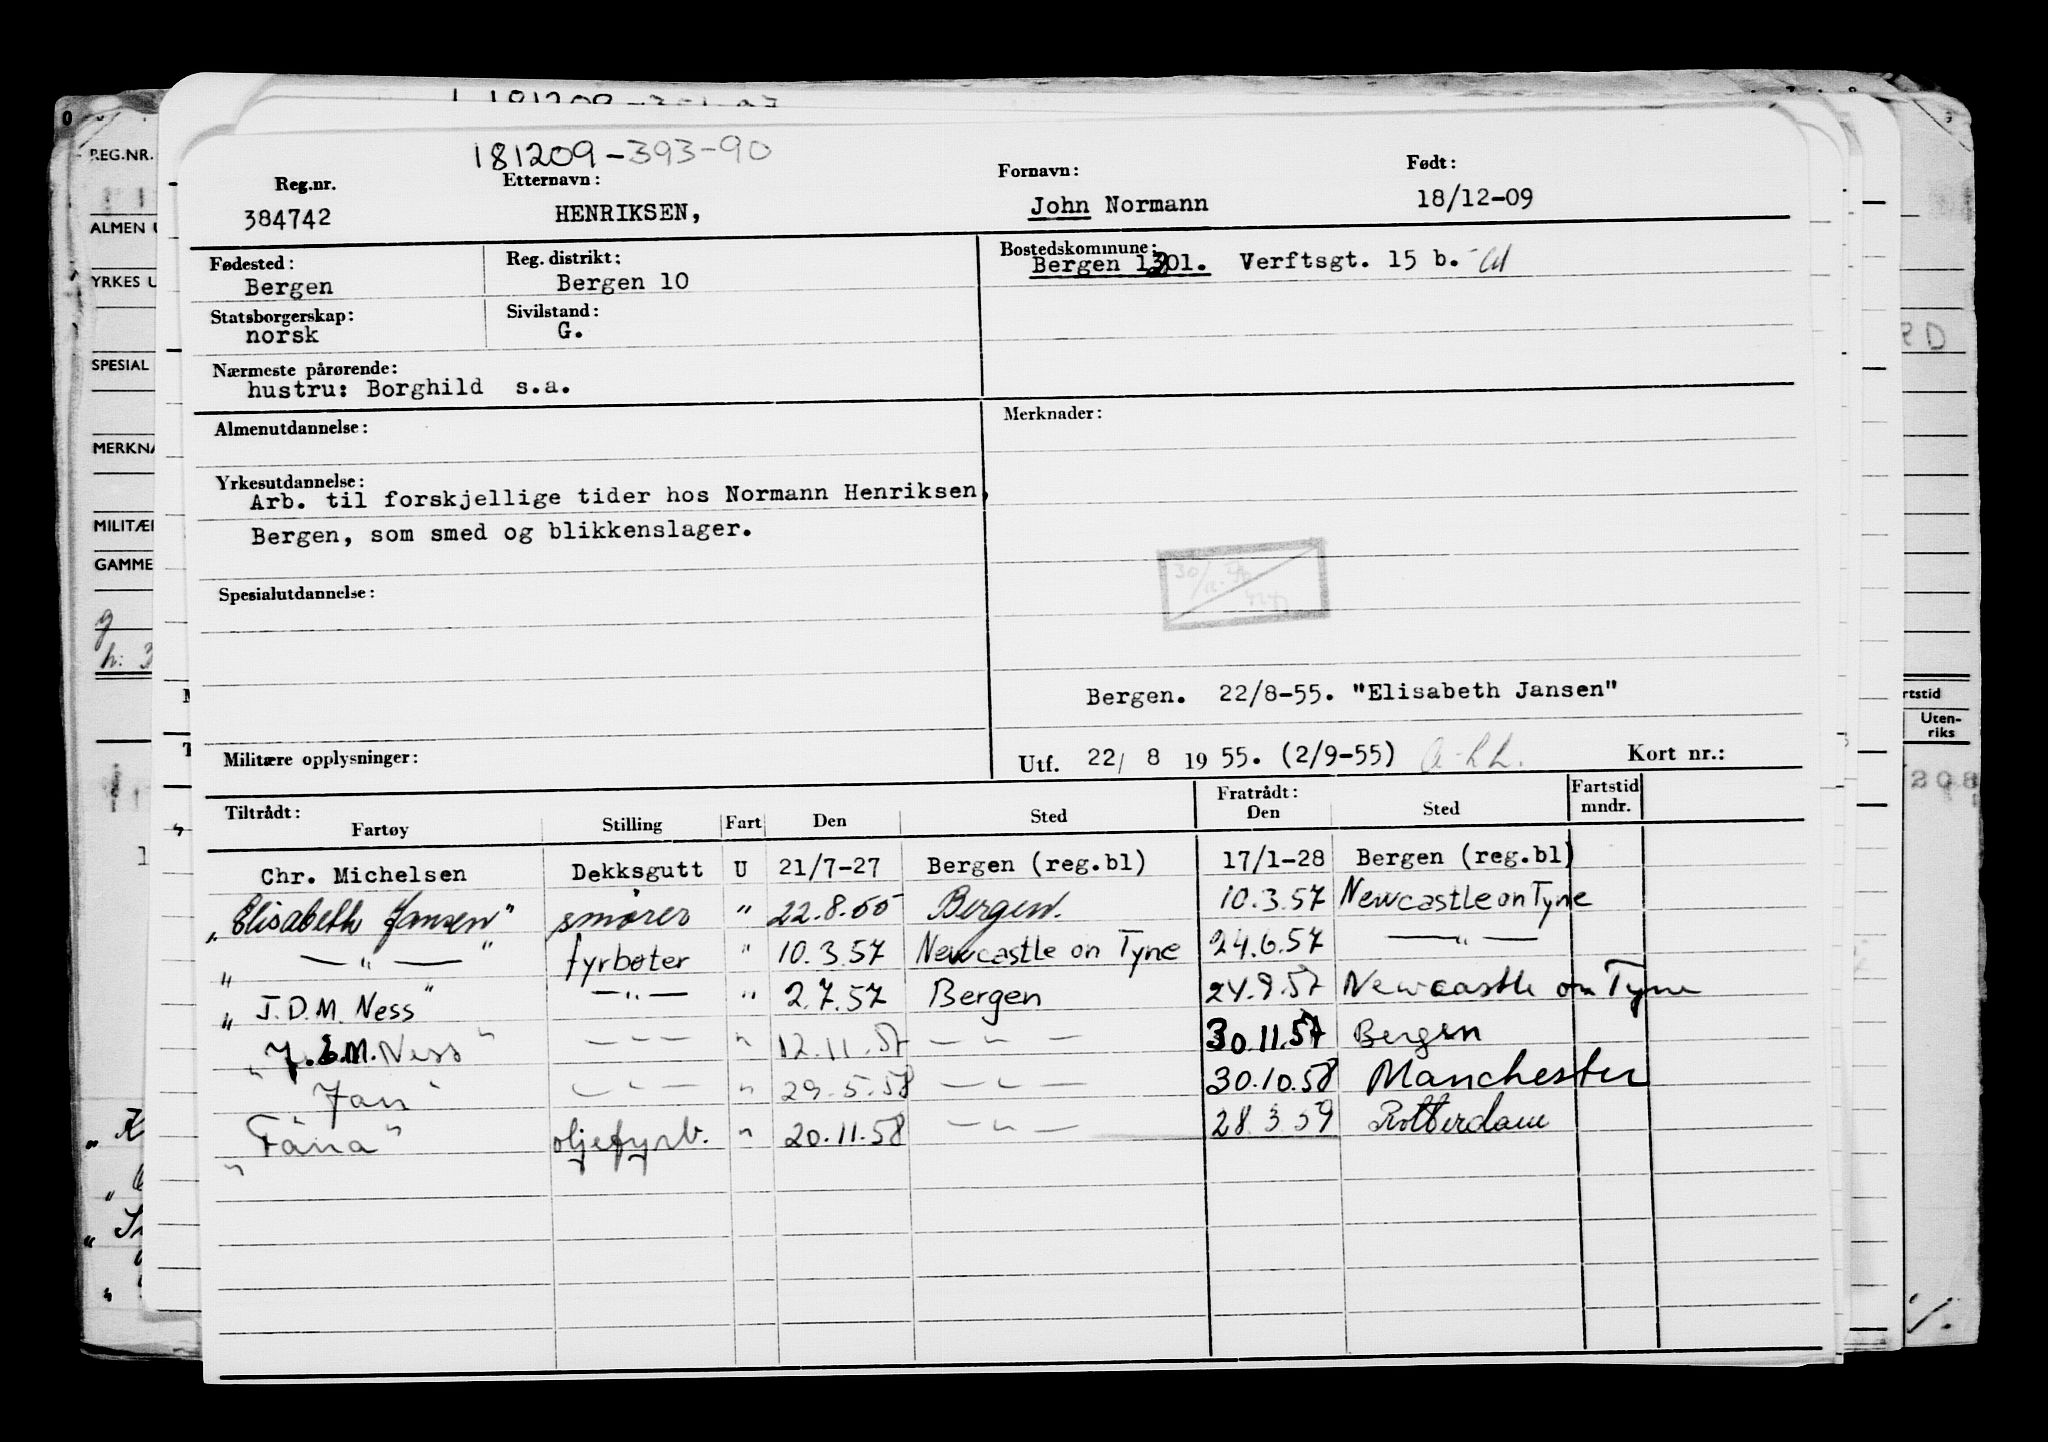 181209-393-90
Reg.nr. Etternavn: Fornavn: Født:
384742 HENRIKSEN, John Normann 18/12-09
Fødested: Reg. distrikt: Bostedskommune:
Bergen Bergen 10 Bergen 1301. Verftsgt. 15 b.
Statsborgerskap: Sivilstand:
norsk G.
Nærmeste pårørende:
hustru: Borghild s.a.
Almenutdannelse: Merknader:
Yrkesutdannelse:
Arb. til forskjellige tider hos Normann Henriksen,
Bergen, som smed og blikkenslager.
Spesialutdannelse:
Bergen. 22/8-55. "Elisabeth Jansen"
Militære opplysninger: Utf. 22/ 8 19 55. (2/9-55) Kort nr.:
Tiltrådt: Fratrådt: Fartstid
Fartøy Stilling Fart Den Sted Den Sted mndr.
Chr. Michelsen Dekksgutt U 21/7-27 Bergen (reg.bl) 17/1-28 Bergen (reg.bl)
„Elisabeth Jansen" smører " 22.8.55 Bergen. 10.3.57 Newcastle on Tyne
„ —„— " fyrbøter " 10.3.57 Newcastle on Tyne 24.6.57 —„—
„ J.D.M. Ness" —„— " 2.7.57 Bergen 24.9.57 Newcastle on Tyne
„ J.D.M. Ness" —„— " 12.11.57 —„— 30.11.57 Bergen
" Jan" —„— " 29.5.58 —„— 30.10.58 Manchester
„ Fana" oljefyrb. " 20.11.58 —„— 28.3.59 Rotterdam
REG.NR.
ALMEN U
YRKES U
SPESIAL
MERKNA
MILITÆR
GAMME
rtstid
Uten-
riks
208